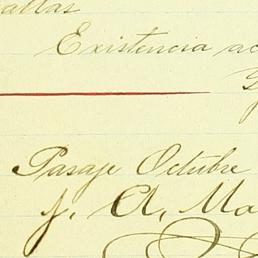 Existencia ac
Pasaje Octubre
J. A. Ma